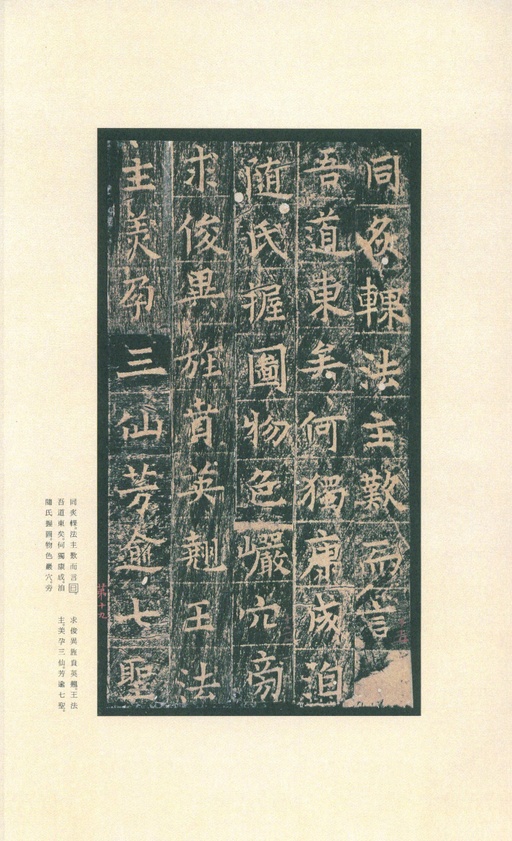 同炙輠法主歎而言
吾道東矣何獨康成洎
随氏握圖物色巖穴旁
求俊異旌賁英翹王法
主美孕三仙芳逾七聖
第十九
同炙輠。法主歎而言曰
吾道東矣，何獨康成。洎
隨氏握圖，物色巖穴，旁
求俊異，旌賁英翹。王法
主，美孕三仙，芳逾七聖。